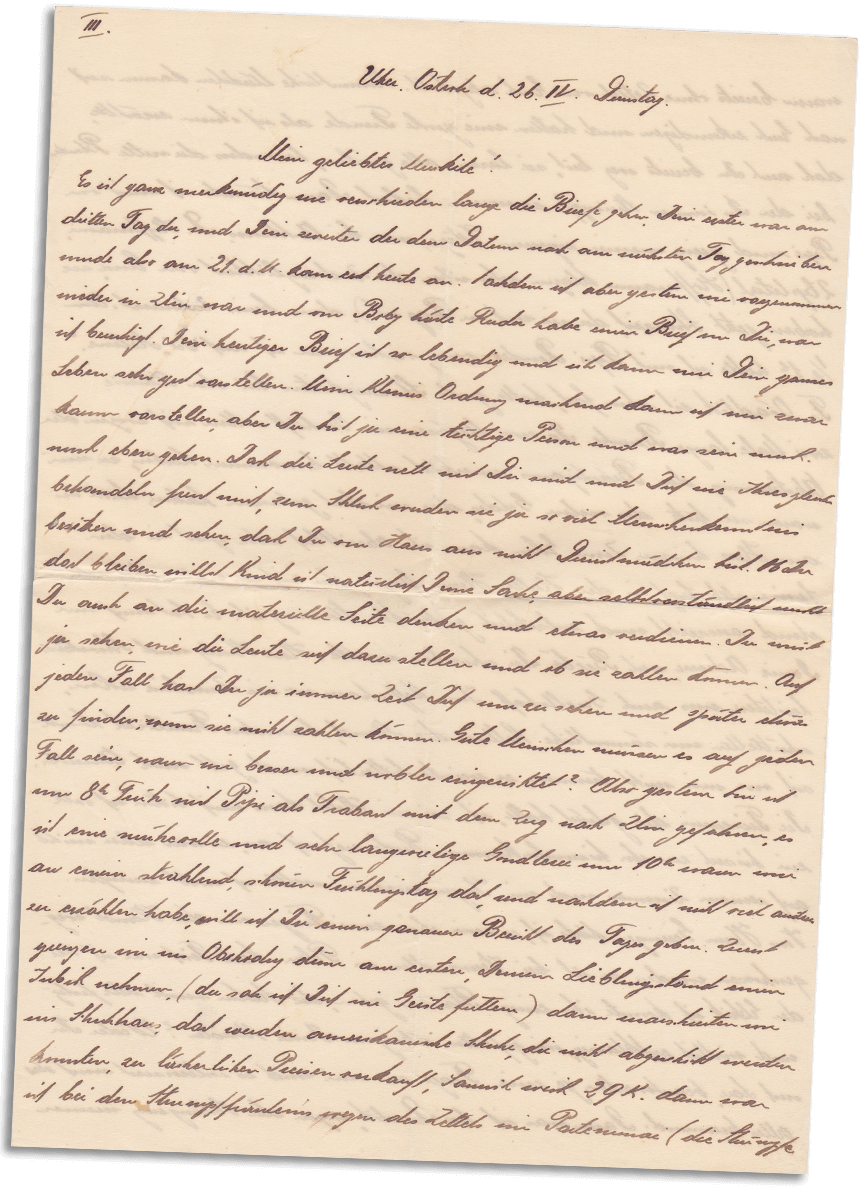 III.
Uher. Ostroh d. 26. IV. Dienstag.
Mein geliebtes Murkile!
Es ist ganz merkwürdig wie verschieden lange die Briefe gehn, Dein erster war am
dritten Tag da, und Dein zweiter der dem Datum nach am nächsten Tag geschrieben
wurde also am 21. d. M. kam erst heute an. Nachdem ich aber gestern wie vorgenommen
wieder in Zlin war und von Boby hörte Ruda habe einen Brief von Dir, war
ich beruhigt. Dein heutiger Brief ist so lebendig und ich kann mir Dein ganzes
Leben sehr gut vorstellen. Mein Kleines Ordnung machend kann ich mir zwar
kaum vorstellen, aber Du bist ja eine tüchtige Person und was sein muß
muß eben gehen. Daß die Leute nett mit Dir sind und Dich wie Ihresgleichen
behandeln freut mich, zum Schluß werden sie ja so viel Menschenkenntnis
besitzen und sehen, daß Du von Haus aus nicht Dienstmädchen bist. Ob Du
dort bleiben willst Kind ist natürlich Deine Sache, aber selbstverständlich mußt
Du auch an die materielle Seite denken und etwas verdienen. Du wirst
ja sehen, wie die Leute sich dazu stellen und ob sie zahlen können. Auf
jeden Fall hast Du ja immer Zeit Dich um zu sehen und später etwas
zu finden, wenn sie nicht zahlen können. Gute Menschen müssen es auf jeden
Fall sein, waren wir besser und nobler eingerichtet? Also gestern bin ich
um 8h Früh mit Pipsi als Trabant mit dem Zug nach Zlin gefahren, es
ist eine mühevolle und sehr langweilige Gondlerei um 10h waren wir
an einem strahlend, schönen Frühlingstag dort, und nachdem ich nicht viel anderes
zu erzählen habe, will ich Dir einen genauen Bericht des Tages geben. Zuerst
giengen wir ins Obchodny dum am ersten, Deinem Lieblingsstand einen
Imbiß nehmen, (da sah ich Dich im Geiste futtern) dann marschierten wir
ins Schuhhaus, dort werden amerikanische Schuhe, die nicht abgeschickt werden
konnten, zu lächerlichen Preisen verkauft, weiß 29 K. dann war
ich bei den Strumpffräuleins wegen des Zettels im (die Strümpfe